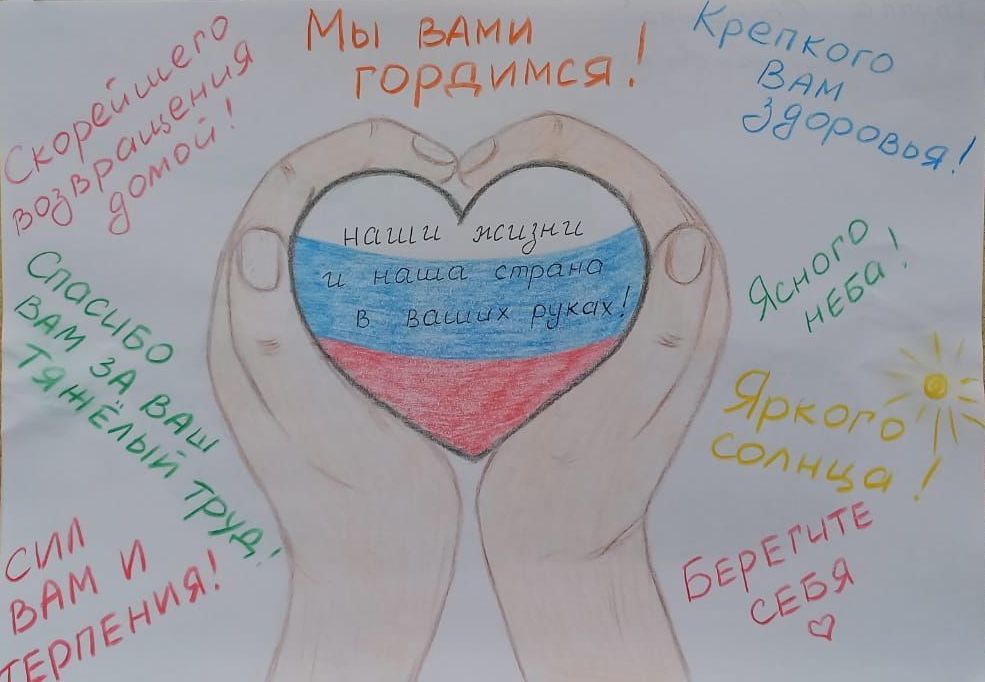 Мы ВАМИ
ГОРДИМСЯ!
Скорейшего
возвращения
домой!
Крепкого
ВАМ
Здоровья!
наши жизни
и наша страна
в ваших руках!
Спасибо
ВАМ ЗА ВАШ
ТЯЖЁЛЫЙ ТРУД!
Ясного
НЕБА!
Яркого
солнца!
СИЛ
ВАМ И
ТЕРПЕНИЯ!
БЕРЕГИТЕ
СЕБЯ